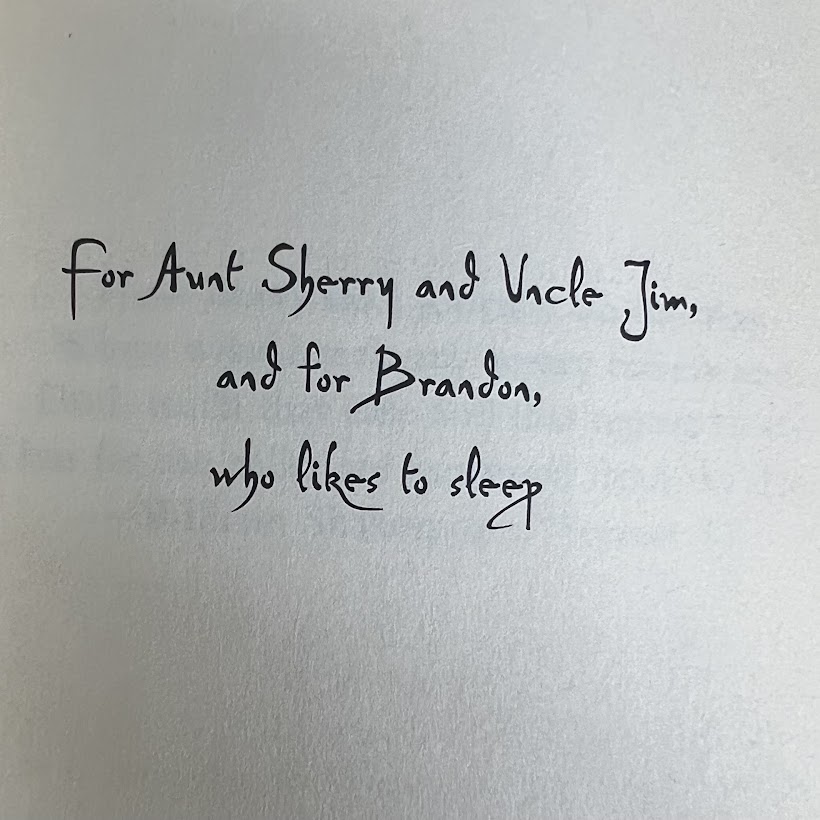 For Aunt Sherry and Uncle Jim,
and for Brandon,
who likes to sleep